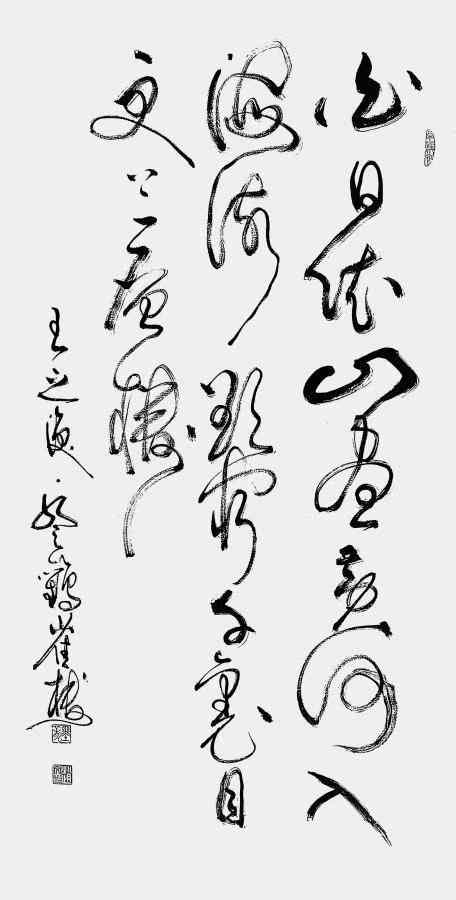 白日依山盡黃河入
海流欲窮千里目
更上一層樓
王之渙·登鸛雀樓